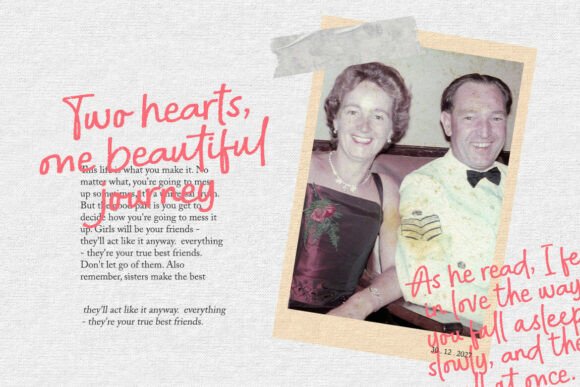 Two hearts,
one beautiful
journey
This life is what you make it. No
matter what, you're going to mess
up sometimes, it's a universal truth.
But the good part is you get to
decide how you're going to mess it
up. Girls will be your friends -
they'll act like it anyway. everything
- they're your true best friends.
Don't let go of them. Also
remember, sisters make the best
they'll act like it anyway. everything
- they're your true best friends.
As he read, I fe
in love the way
you fall asleep
slowly, and the
at once.
12 . 2027